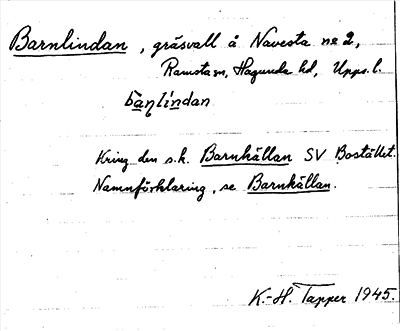 Barnlindan, gräsvall å Navesta nr 2,
Ramsta sn, Hagunda hd, Upps. l.
ba̱ṇlindan
Kring den s.k. Barnkällan SV Bostället.
Namnförklaring, se Barnkällan.
K.-H. Tapper 1945.